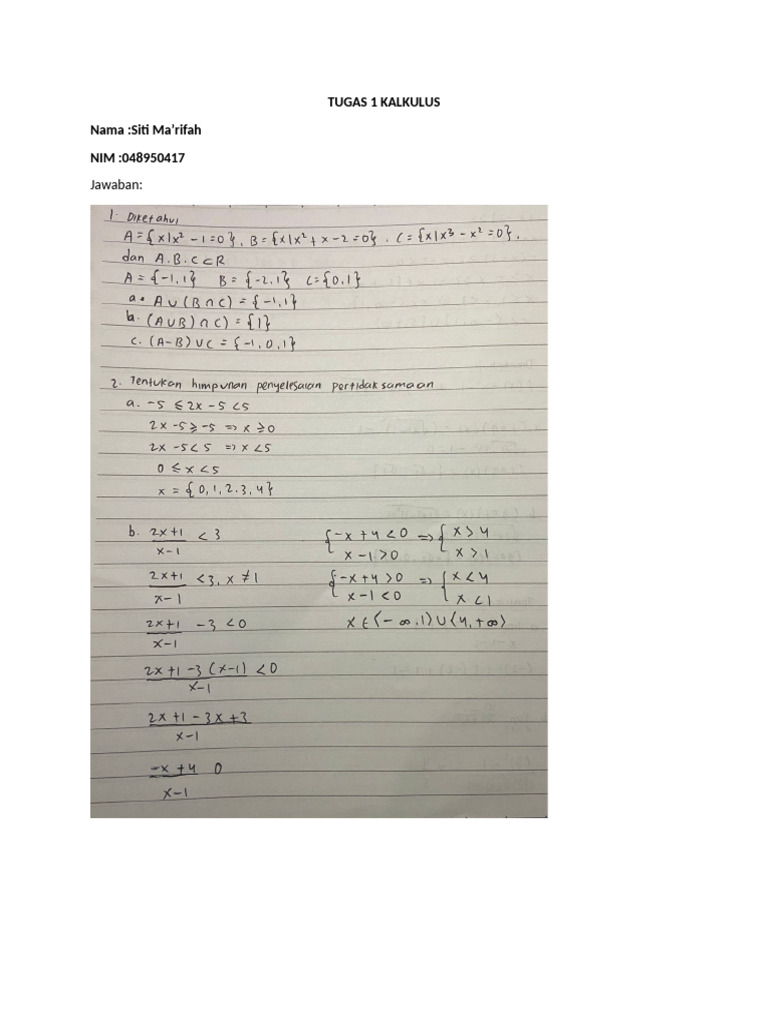 TUGAS 1 KALKULUS
Nama :Siti Ma'rifah
NIM :048950417
Jawaban:
1. Diketahui,
A = {x|x² - 1 = 0}, B = {x|x² + x - 2 = 0}, C = {x|x³ - x² = 0},
dan A.B.C ⊂ R
A = {-1,1} B = {-2,1} C = {0,1}
a. A ∪ (B ∩ C) = {-1,1}
b. (A ∪ B) ∩ C) = {1}
c. (A - B) ∪ C = {-1,0,1}
2. Tentukan himpunan penyelesaian pertidaksamaan
a. -5 ≤ 2x - 5 < 5
2x - 5 ≥ -5 => x ≥ 0
2x - 5 < 5 => x < 5
0 ≤ x < 5
x = {0,1,2.3,4}
b. (2x+1)/(x-1) < 3
(2x+1)/(x-1) < 3, x ≠ 1
(2x+1)/(x-1) - 3 < 0
(2x+1-3(x-1))/(x-1) < 0
(2x+1-3x+3)/(x-1)
(-x+4)/(x-1) 0
{-x+4 < 0 => {x > 4
x-1 > 0 x > 1
{-x+4 > 0 => {x < 4
x-1 < 0 x < 1
x ∈ (-∞,1) ∪ (4,+∞)